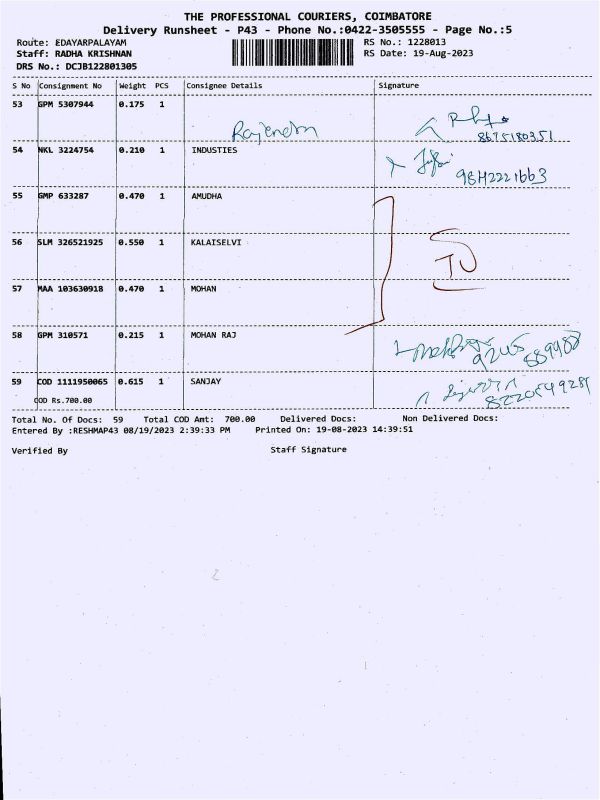 THE PROFESSIONAL COURIERS, COIMBATORE
Delivery Runsheet - P43 - Phone No.:0422-3505555 - Page No.:5
Route: EDAYARPALAYAM RS No.: 1228013
Staff: RADHA KRISHNAN RS Date: 19-Aug-2023
DRS No.: DCJB122801305
S No Consignment No Weight PCS Consignee Details Signature
53 GPM 5307944 0.175 1
Rajendran
8675180351
54 NKL 3224754 0.210 1 INDUSTIES
55 GMP 633287 0.470 1 AMUDHA
56 SLM 326521925 0.550 1 KALAISELVI
57 MAA 103630918 0.470 1 MOHAN
58 GPM 310571 0.215 1 MOHAN RAJ
59 COD 1111950065 0.615 1 SANJAY
COD Rs.700.00
Total No. Of Docs: 59 Total COD Amt: 700.00 Delivered Docs: Non Delivered Docs:
Entered By :RESHMAP43 08/19/2023 2:39:33 PM Printed On: 19-08-2023 14:39:51
Verified By Staff Signature